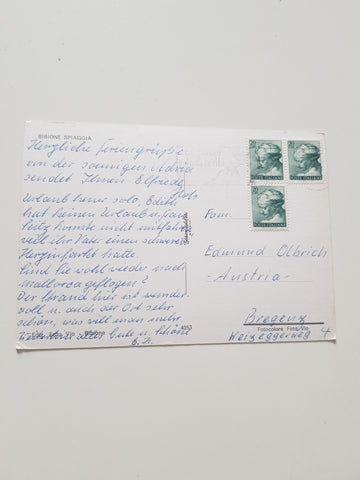 BIBIONE SPIAGGIA
Herzliche Feriengrüße
von der sonnigen Adria
sendet Ihnen Elfriede
Urlaub heuer solo, Edith
hat keinen Urlaub
konnte nicht mitfahren
weil ihr Vater einen schweren
Herzinfarkt hatte.
Sind Sie wohl wieder nach
Mallorca geflogen?
Der Strand hier ist wunder
voll u. auch der Ort sehr
schön, was will man mehr
alles Gute u. Schöne
POSTE ITALIANE
POSTE ITALIANE
POSTE ITALIANE
Fam.
Edmund Olbrich
- Austria -
Bregenz
Fotocolore Foto Vio
Weizeggerweg 4
4053